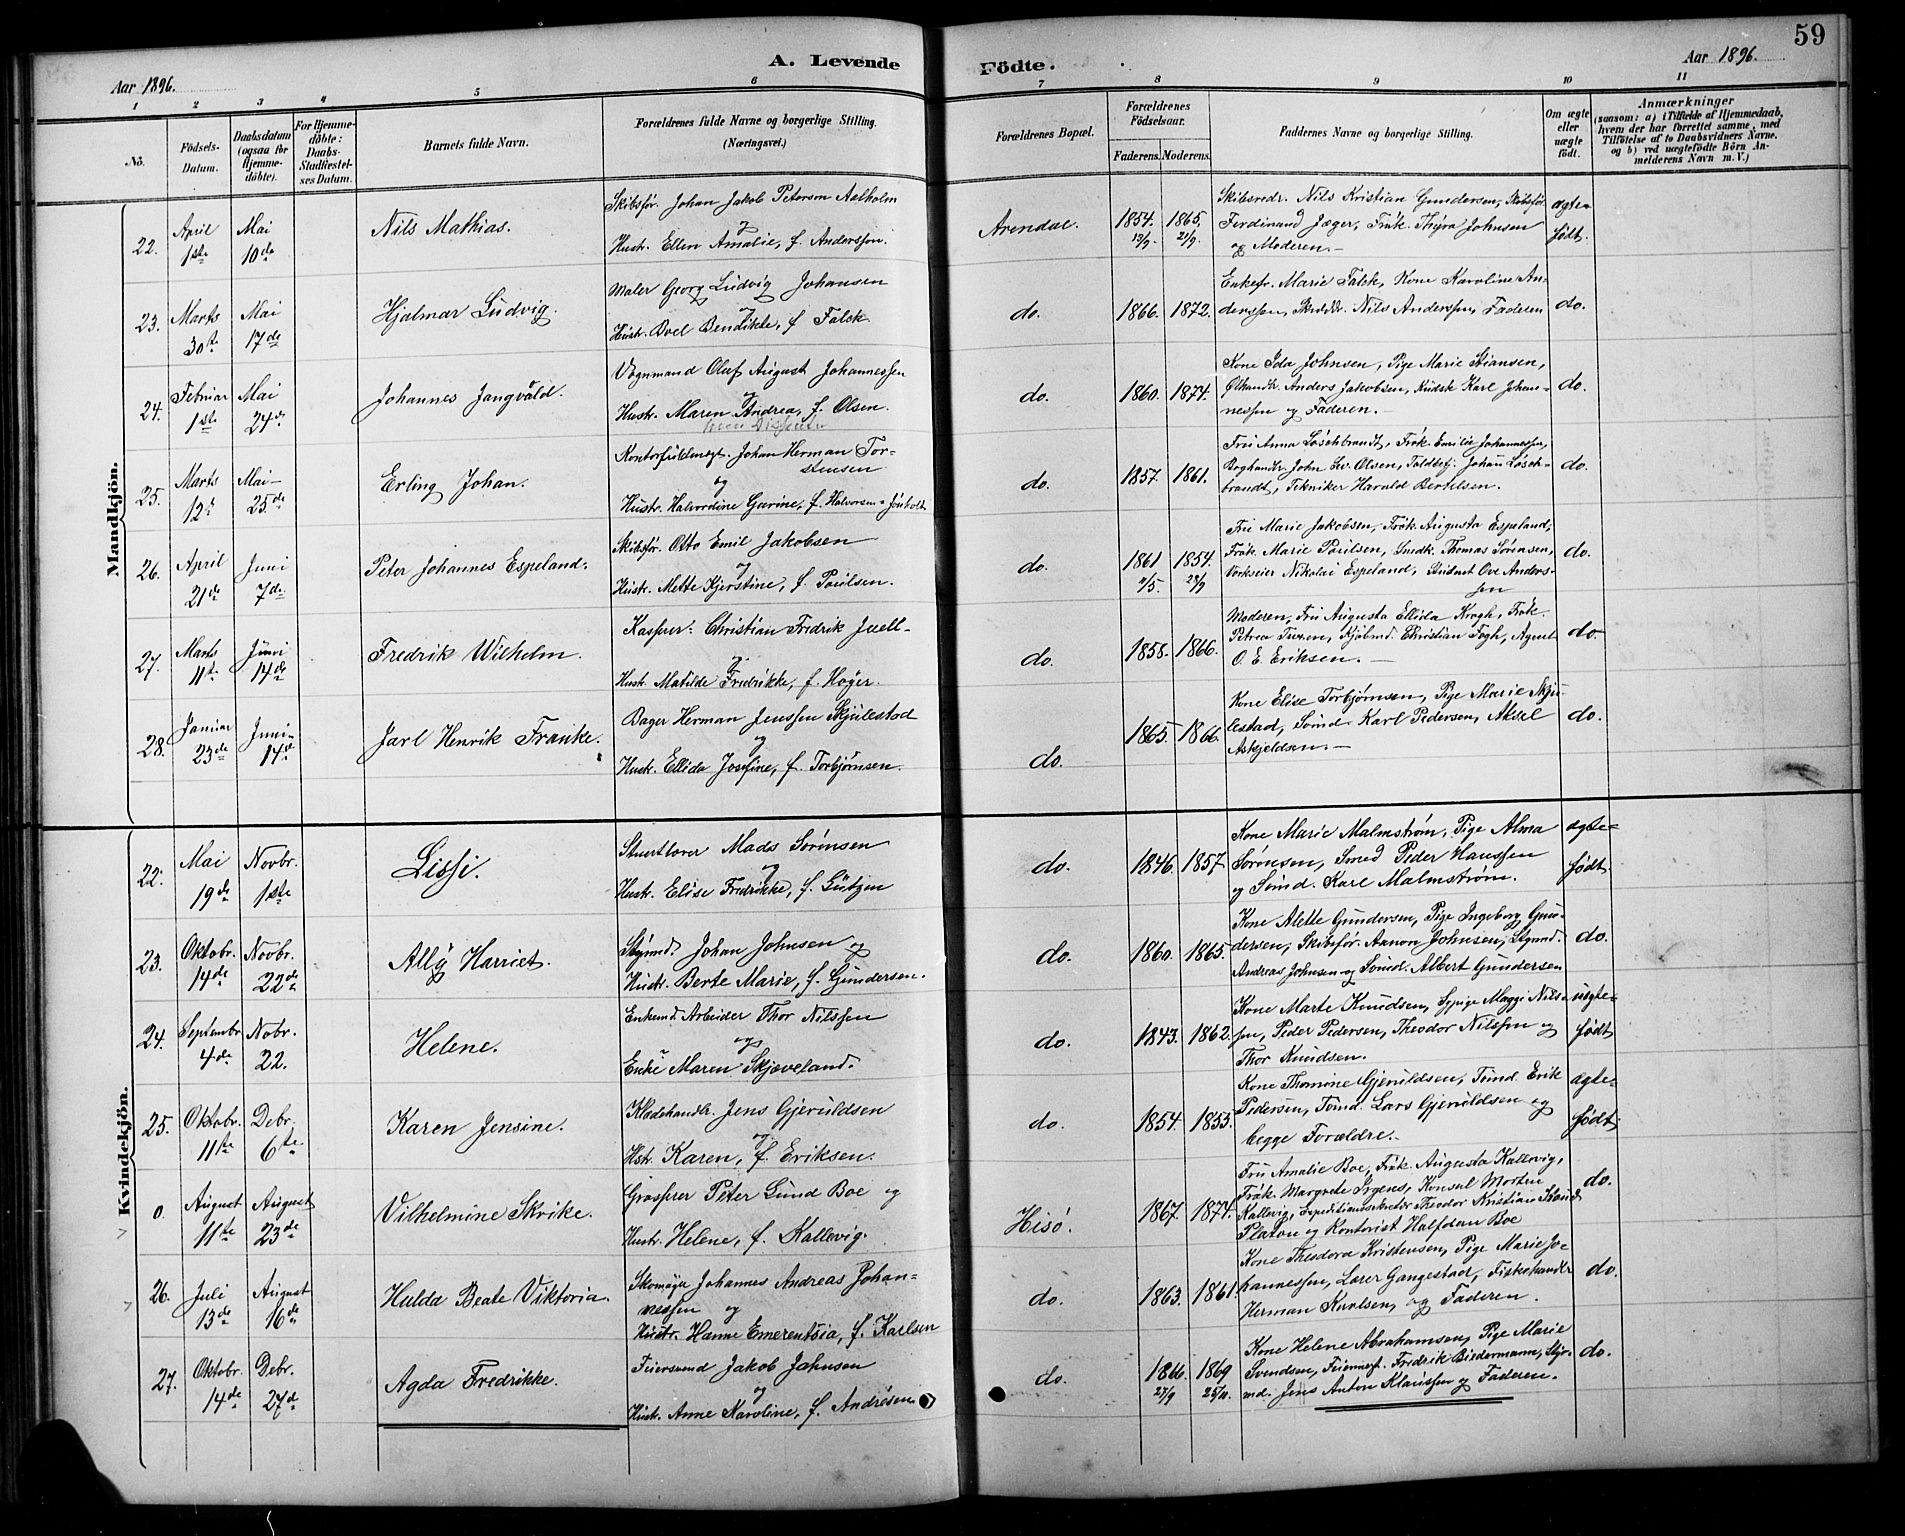 59
A. Levende Födte.
Aar 1896.
Aar 1896.
1 2 3 4 5 6 7 8 9 10 11
No.
Födsels-Datum.
Daabsdatum (ogsaa for Hjemmedöbte).
For Hjemmedöbte: Daabs-Stadfæstelses Datum.
Barnets fulde Navn.
Forældrenes fulde Navne og borgerlige Stilling. (Næringsvei.)
Forældrenes Bopæl.
Forældrenes Födselsaar.
Faderens. Moderens.
Faddernes Navne og borgerlige Stilling.
Om ægte eller uægte födt.
Anmærkninger
(saasom: a) i Tilfælde af Hjemmedaab, hvem der har forrettet samme, med Tilföielse af to Daabsvidners Navne, og b) ved uægtefödte Börn Anmelderens Navn m. V.)
Mandkjön.
22. April 1ste Mai 10de
Nils Mathias.
Skibsfør. Johan Jakob Peterson Aalholm
og
Hustr. Ellen Amalie, f. Anderssen.
Arendal. 1854. 12/9. 1865. 21/9.
Skibsredr. Nils Kristian Gundersen, Skibsfør.
Ferdinand Jæger, Frøk. Thyra Johnsen
og Moderen.—
ægte-
født.
23. Marts 30te Mai 17de
Hjalmar Ludvig.
Maler Georg Ludvig Johansen
og
Hustr. Boel Bendikte, f. Falck
do. 1866. 1872.
Enkefr. Marie Falck, Kone Karoline An-
derssen, Nils Anderssen, Faderen
do.
24. Februar 1ste Mai 24de
Johannes Jangvald.
Vognmand Olaf August Johannessen
og
Hustr. Maren Andrea, f. Olsen.
do. 1860. 1874.
Kone Ida Johnsen, Pige Marie Stiansen,
Ølhandlr. Anders Jakobsen, Kudsk Karl Johan-
nessen og Faderen.—
do.
25. Marts 12te Mai 25de
Erling Johan.
Kontorfuldmægt. Johan Herman Tor-
stensen
og
Hustr. Halvordine Gurine, f. Halvorsen
do. 1857. 1861.
Fru Anna Løschbrandt, Frøk. Emilie Johannessen,
Boghandlr. John Sv. Olsen, Toldbetj. Johan Løsch-
brandt, Tekniker Harald Bertelsen.
do.
26. April 21de Juni 7de
Peter Johannes Espeland.
Skibsfør. Otto Emil Jakobsen
og
Hustr. Mette Kjerstine, f. Paulsen.
do. 1861 1854.
Fru Marie Jakobsen, Frøk. Augusta Espeland,
Frøk. Marie Paulsen, Snedk. Thomas Sørensen,
Værkseier Nikolai Espeland, Student Ove Anders-
sen
do.
27. Marts 11te Juni 14de
Fredrik Wilhelm.
Kasserer Christian Fredrik Juell
og
Hustr. Matilde Fredrikke, f. Høyer.
do. 1858. 1866.
Moderen, Fru Augusta Ellida Krogh, Frøk.
Petrea Christian Fogh, Agent
O. E. Eriksen.—
do
28. Januar 23de Juni 14de
Jarl Henrik Franke.
Bager Herman Jenssen Skjulestad
og
Hustr. Ellida Josefine, f. Torbjørnsen.
do. 1865. 1866.
Kone Elise Torbjørnsen, Pige Marie Skju-
lestad, Sømd. Karl Pedersen, Aksel
Askjeldsen.—
do.
Kvindekjön.
22. Mai 19de Novbr. 1ste
Lissi.
Mads Sørensen
og
Hustr. Elise Fredrikke, f. Lützen
do. 1846. 1857.
Kone Marie Malmstrøm, Pige Alma
Sørensen, Smed Peder Hanssen
og Sømd. Karl Malmstrøm.
ægte-
født.
23. Oktobr. 14de Novbr. 22de
Ally Harriet.
Stymd. Johan Johnsen og
Hustr. Berte Marie, f. Gundersen.
do. 1860. 1865.
Kone Alette Gundersen, Pige Ingeborg Gun-
dersen, Skibsfør. Aanon Johnsen, Stymd.
Andreas Johnsen og Sømd. Albert Gundersen
do.
24. Septembr. 4de Nobr. 22.
Helene.
Enkemd. Arbeider Thor Nilssen
og
Enke Maren Skjæveland.
do. 1843. 1862.
Kone Marte Knudsen, Sypige Maggi Nils-
sen, Peder Pedersen, Theodor Nilssen og
Thor Knudsen.
uægte-
født
25. Oktobr. 11te Debr. 6te
Karen Jensine.
Klædehandlr. Jens Gjeruldsen
og
Hstr. Karen, f. Eriksen.
do. 1854. 1855.
Kone Thomine Gjeruldsen, Tømd. Erik
Pedersen, Tømd. Lars Gjeruldsen og
begge Forældre.—
ægte-
født
0. August 11te August 23de
Vilhelmine Skrike.
Grosserer Peter Lund Boe og
Hustr. Helene, f. Kallevig.
Hisö. 1867. 1874.
Fru Amalie Boe, Frøk. Augusta Kallevig,
Frøk. Margrete Konsul Morten
Kallevig, Expeditionssekretær Theodor Kristian
Platou og Kontorist Halfdan Boe
do.
26. Juli 13de August 16de
Hulda Beate Viktoria.
Skomager Johannes Andreas Johan-
nessen og
Hustr. Hanne Emerentsia, f. Karlsen
do. 1863. 1861.
Kone Theodora Kristensen, Pige Marie Jo-
hannessen, Lærer Gangestad, Fiskehandlr
Herman Karlsen, og Faderen.
do.
27. Oktobr. 14de Debr. 27d
Agda Fredrikke.
Feiersvend Jakob Johnsen
og
Hustr. Anne Karoline, f. Andrésen
do. 1866 27/9 1869
Kone Helene Abrahamsen, Pige Marie
Svendsen, Feiermest. Fredrik Biedermann, Styr-
md. Jens Anton Klaussen og Faderen.
do.